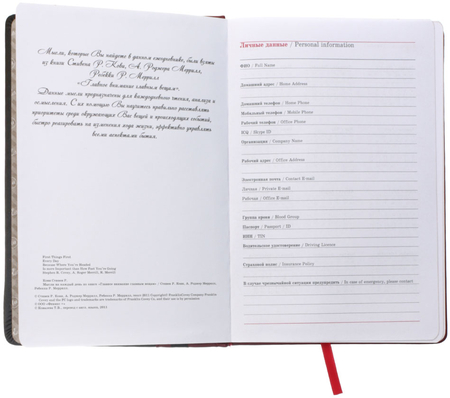 Мысли, которые Вы найдете в данном ежедневнике, были взяты
из книги Стивена Р. Кови, А. Роджера Меррилл,
Ребекки Р. Меррилл
«Главное внимание главным вещам».
Данные мысли предназначены для каждодневного чтения, анализа и
осмысления. С их помощью Вы научитесь правильно расставлять
приоритеты среди окружающих Вас вещей и происходящих событий,
быстро реагировать на изменения хода жизни, эффективно управлять
всеми аспектами бытия.
First Things First
Every Day
Stephen R. Covey, A. Roger Merrill, R. Merrill
Личные данные / Personal information
ФИО / Full Name
Домашний адрес / Home Address
Домашний телефон / Home Phone
Мобильный телефон / Mobile Phone
Рабочий телефон / Office Phone
ICQ / Skype ID
Организация / Company Name
Рабочий адрес / Office Address
Электронная почта / Contact E-mail
Личная / Private E-mail
Рабочая / Office E-mail
Группа крови / Blood Group
Паспорт / Passport / ID
ИНН / TIN
Водительское удостоверение / Driving License
Страховой полис / Insurance Policy
В случае чрезвычайной ситуации предупредить / In case of emergency, please contact